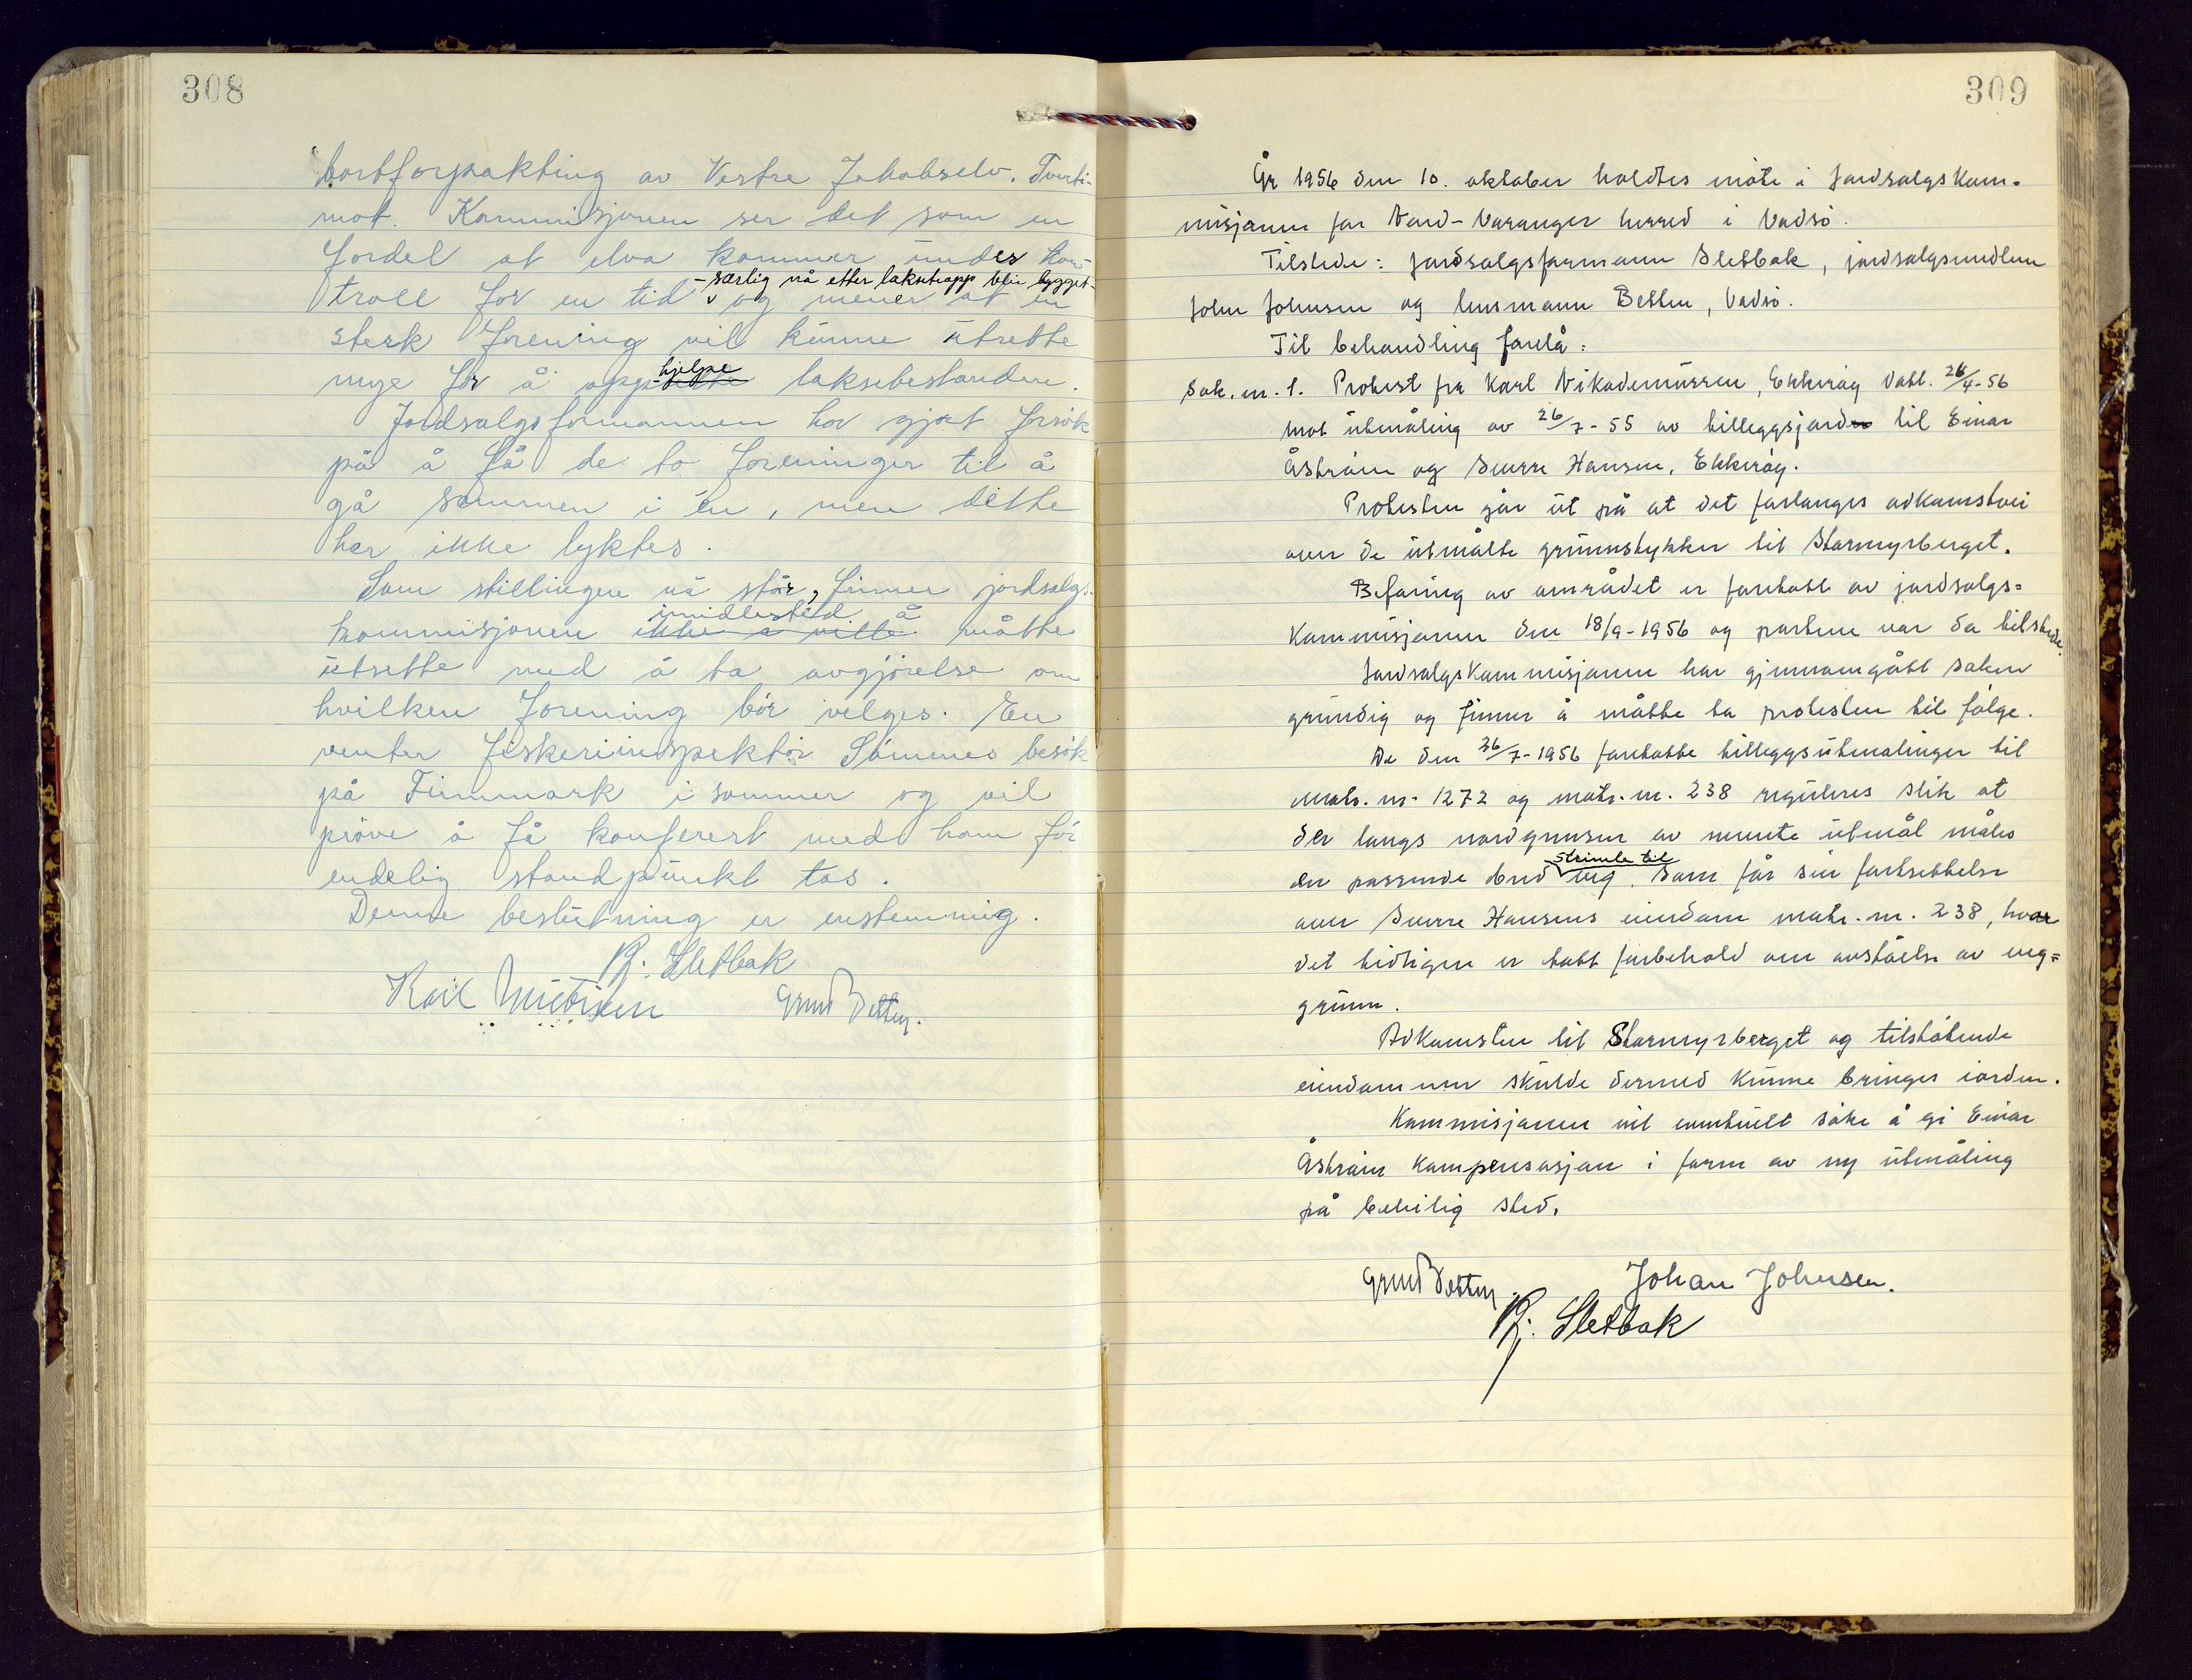 308
bortforpakting av Vestre Jakobselv. Tverti-
mot. Kommisjonen ser det som en
fordel at elva kommer under kon-
- særlig nå etter laksetrapp blir bygget -
troll for en tid og mener at en
sterk forening vil kunne utrette
hjelpe
mye for å opp laksebestanden.
Jordsalgsformannen har gjort forsök
på å få de to foreninger til å
gå sammen i én, men dette
har ikke lyktes.
Som stillingen nå står, finner jordsalgs-
imidlertid å
kommisjonen ikke å ville måtte
utsette med å ta avgjörelse om
hvilken forening bör velges. En
venter fiskeriinspektör Sömmes besök
på Finnmark i sommer og vil
pröve å få konferert med ham för
endelig standpunkt tas.
Denne beslutning er enstemmig.
Kj. Sletbak
Karl
309
År 1956 den 10. oktober holdtes möte i jordsalgskom-
misjonen for Nord-Varanger herred i Vadsö.
Tilstede: jordsalgsformann Sletbak, jordsalgsmedlem
John Johnsen og lensmann Betten, Vadsö.
Til behandling forelå:
Sak. nr. 1. Protest fra Karl Nikodemussen, Ekkeröy datt. 26/4-56
mot utmåling av 26/7-55 av tilleggsjord til Einar
Åström og Sverre Hansen, Ekkeröy.
Protesten går ut på at det forlanges adkomstvei
over de utmålte grunnstykker til Stormyrberget.
Befaring av området er foretatt av jordsalgs=
kommisjonen den 18/9-1956 og partene var da tilstede.
Jordsalgskommisjonen har gjennomgått saken
grundig og finner å måtte ta protesten til fölge.
De den 26/7-1956 foretatte tilleggsutmålinger til
matr. nr. 1272 og matr. nr. 238 reguleres slik at
der langs nordgrensen av nevnte utmål måles
strimle til
en passende bred veg. Som får sin fortsettelse
over Sverre Hansens eiendom matr. nr. 238, hvor
det tidligere er tatt forbehold om avståelse av veg=
grunn.
Adkomsten til Stormyrberget og tilstötende
eiendommer skulde dermed kunne bringes iorden.
Kommisjonen vil eventuelt söke å gi Einar
Åström kompensasjon i form av ny utmåling
på beleilig sted.
Johan Johnsen.
Kj. Sletbak